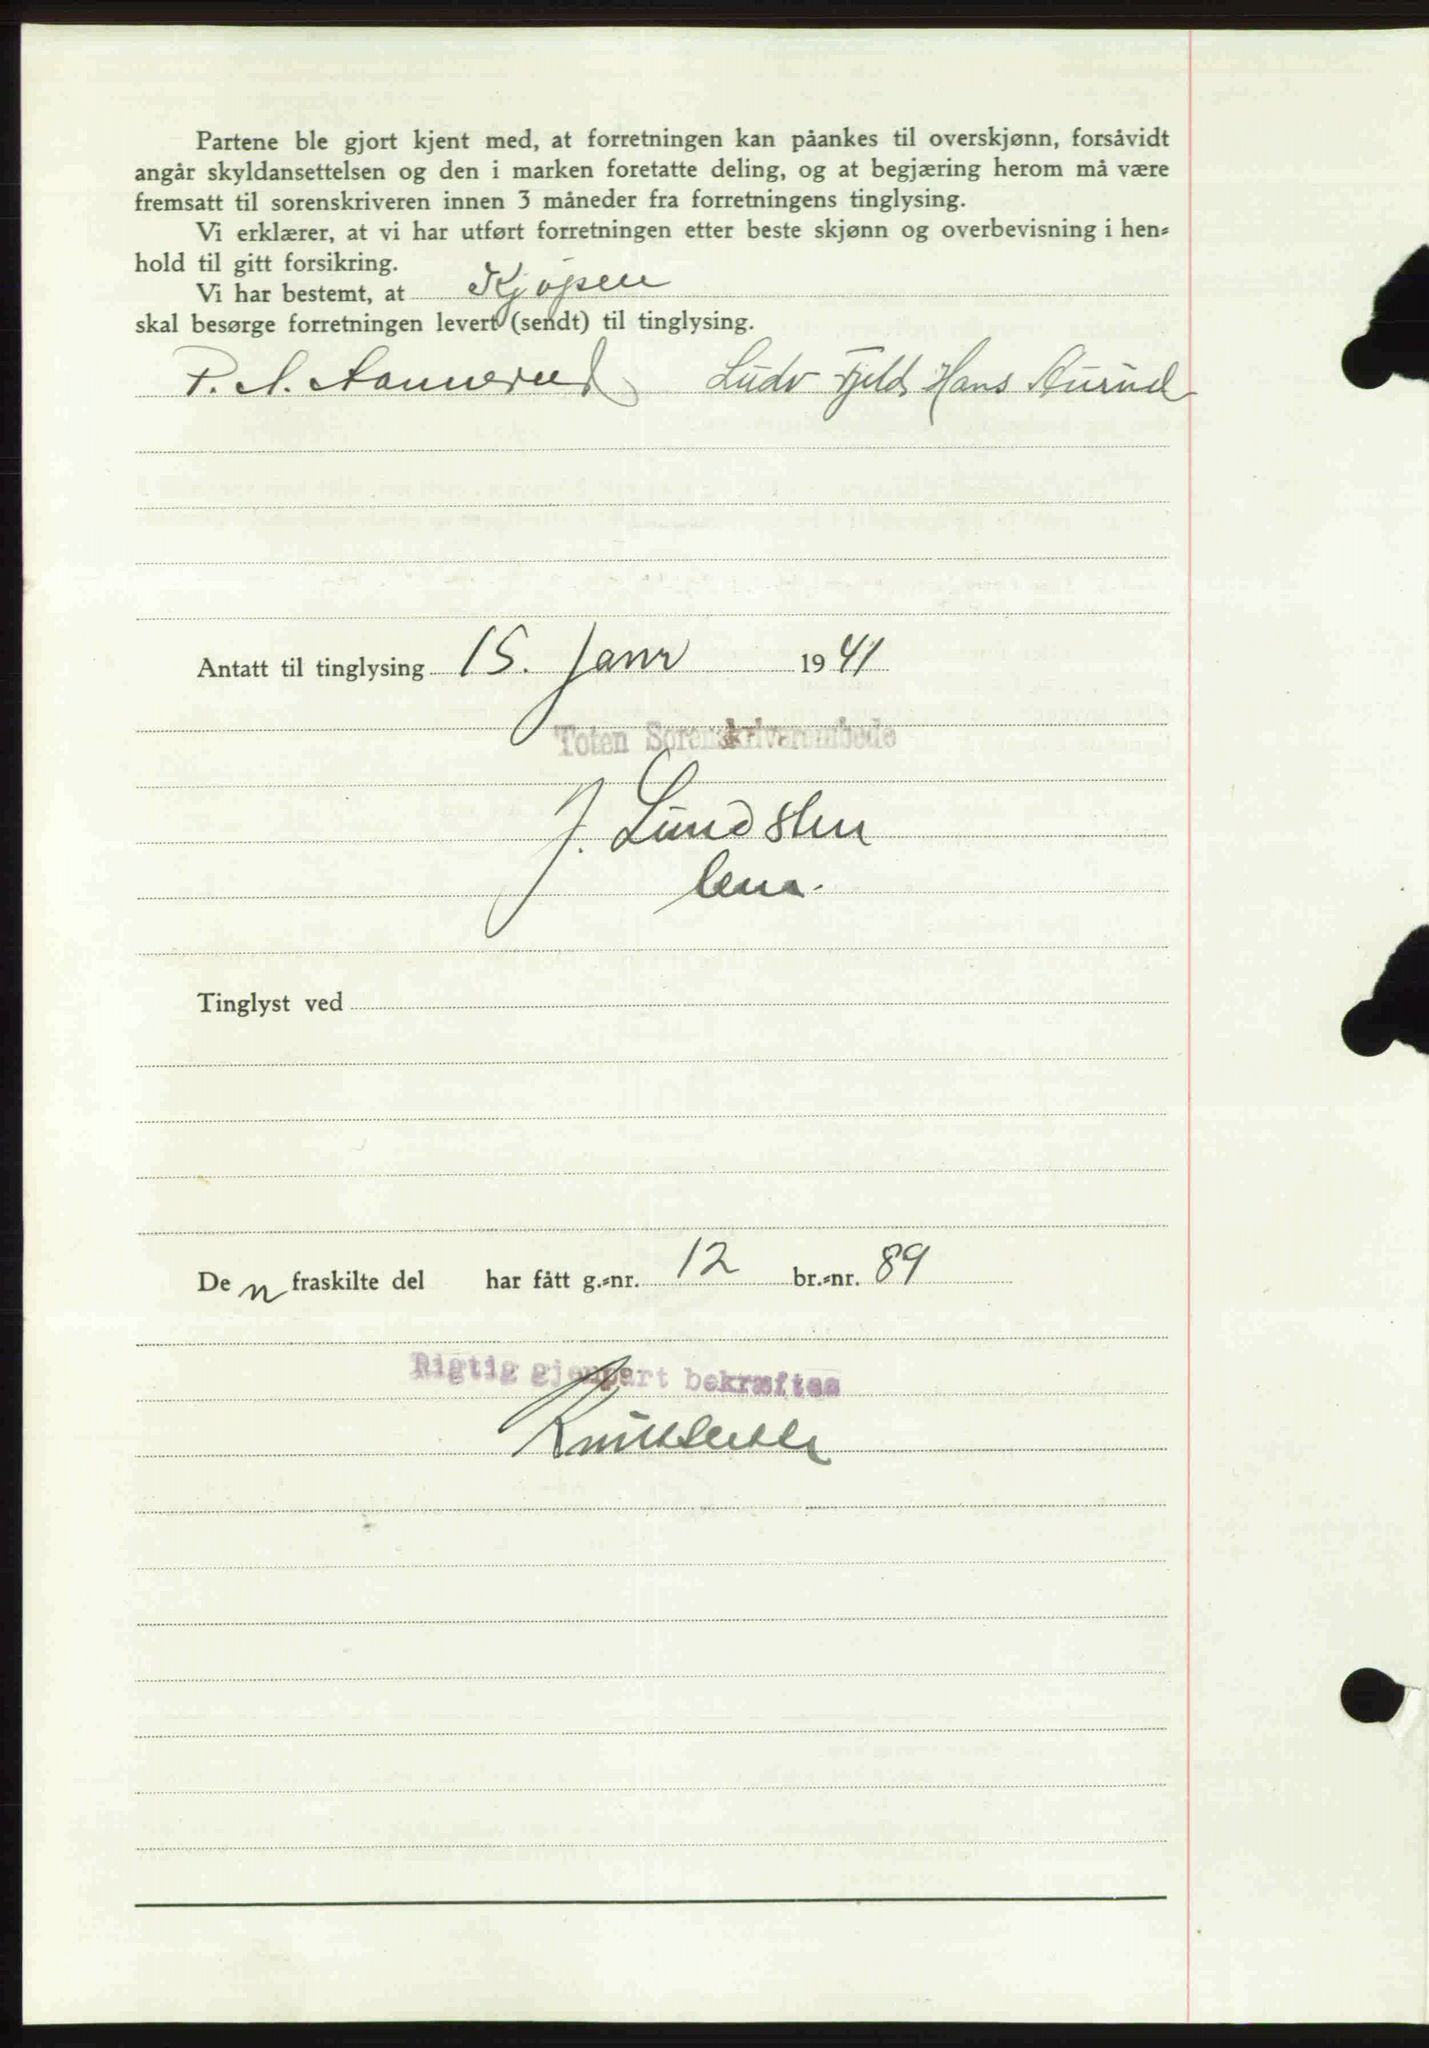 Partene ble gjort kjent med, at forretningen kan påankes til overskjønn, forsåvidt
angår skyldansettelsen og den i marken foretatte deling, og at begjæring herom må være
fremsatt til sorenskriveren innen 3 måneder fra forretningens tinglysing.
Vi erklærer, at vi har utført forretningen etter beste skjønn og overbevisning i hen-
hold til gitt forsikring.
Vi har bestemt, at Kjøperen
skal besørge forretningen levert (sendt) til tinglysing.
P. A. Aannerud Ludv Fjeld Hans Aurud
Antatt til tinglysing 15. Janr 1941
Toten Sorenskriverembede
J. Lundsten
Tinglyst ved
De n fraskilte del har fått g.-nr. 12 br.-nr. 89
Rigtig gjenpart bekræftes